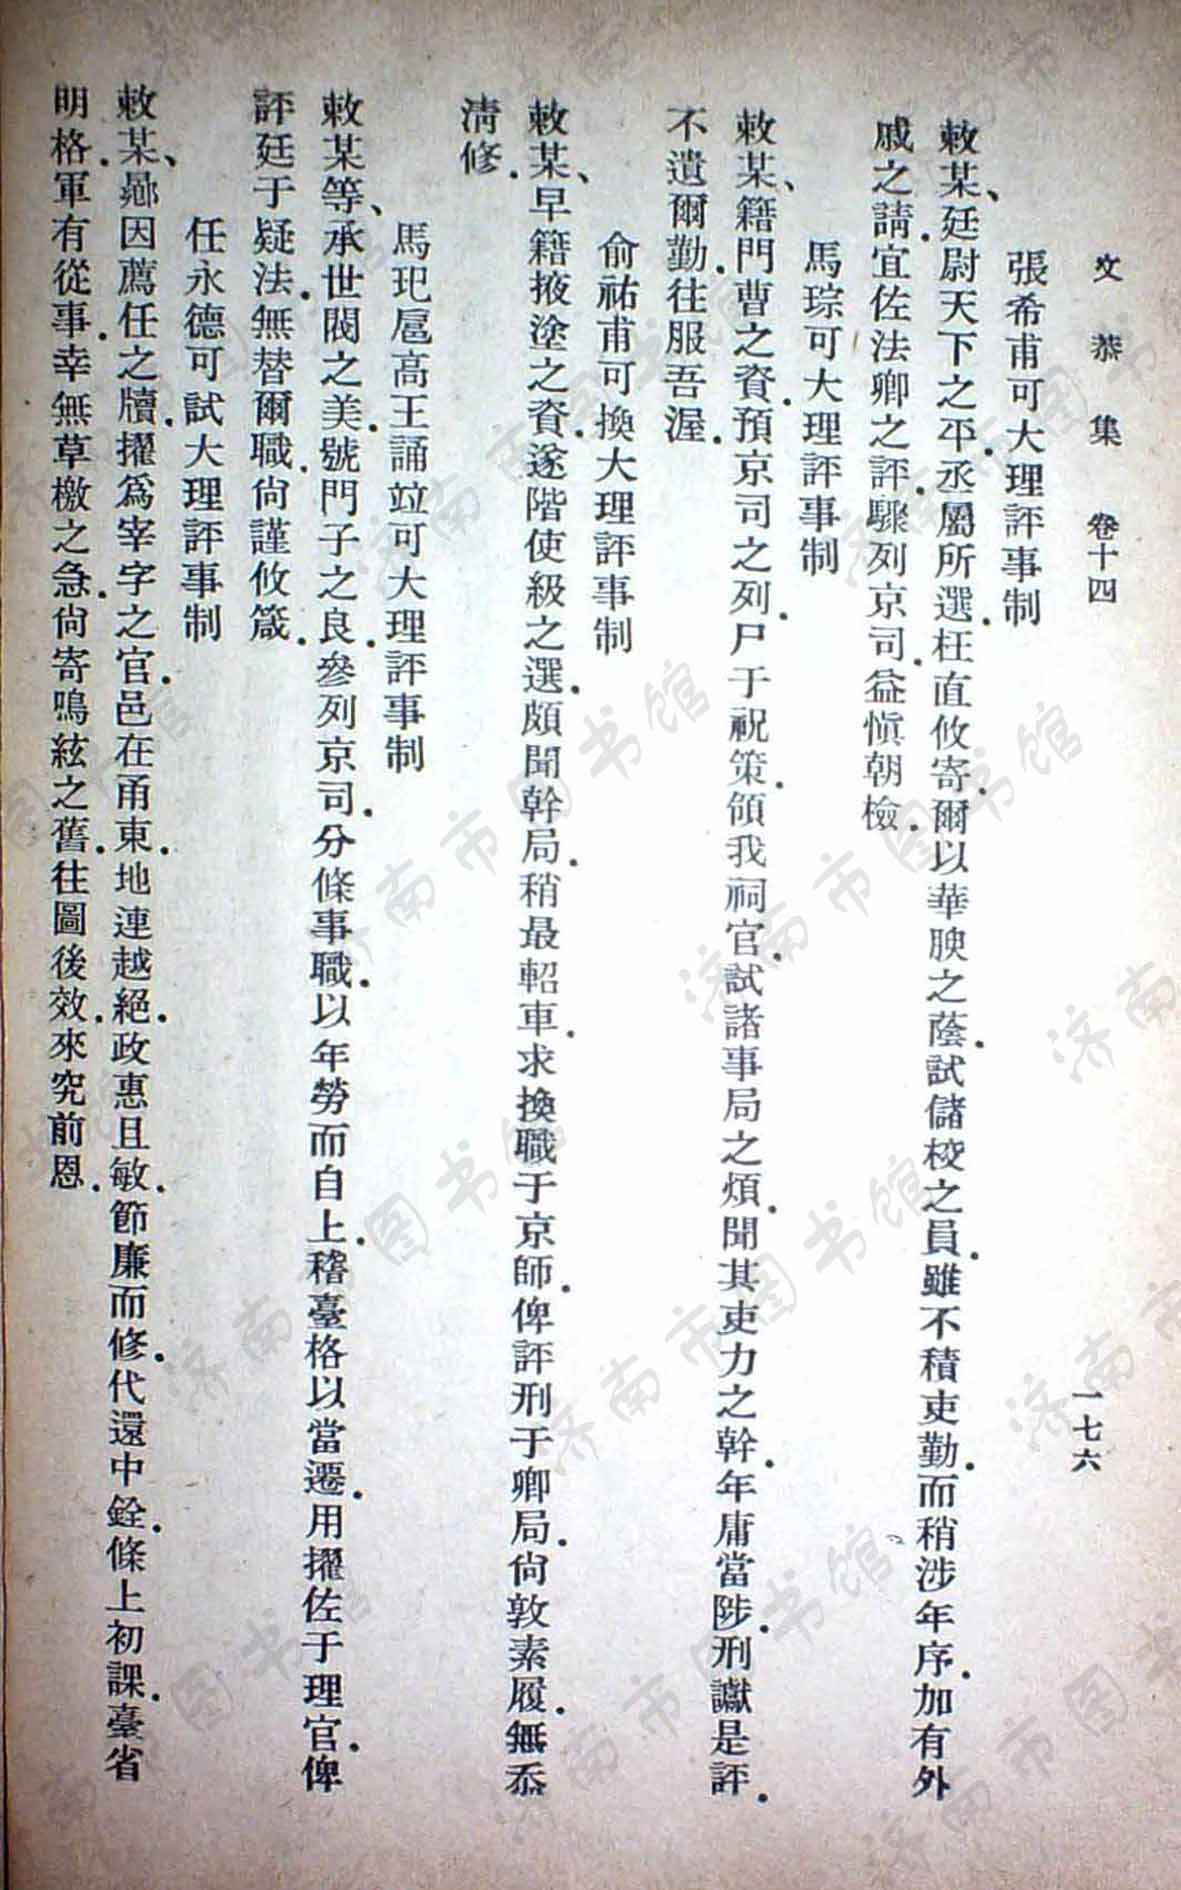 文恭集 卷十四 一七六
張希甫可大理評事制
敕某、廷尉天下之平.丞屬所選.枉直攸寄.爾以華腴之蔭.試儲校之員.雖不積吏勤.而稍涉年序.加有外
戚之請.宜佐法卿之評.驟列京司.益愼朝檢.
馬琮可大理評事制
敕某、籍門曹之資.預京司之列.尸于祝策.領我祠官.試諸事局之煩.聞其吏力之幹.年庸當陟.刑讞是評.
不遺爾勤.往服吾渥.
俞祐甫可換大理評事制
敕某、早籍掖塗之資.遂階使級之選.頗聞幹局.稍最軺車.求換職于京師.俾評刑于卿局.尙敦素履.無忝
淸修.
馬玘扈高王誦竝可大理評事制
敕某等、承世閥之美.號門子之良.參列京司.分條事職.以年勞而自上.稽臺格以當遷.用擢佐于理官.俾
評廷于疑法.無替爾職.尙謹攸箴.
任永德可試大理評事制
敕某、曏因薦任之牘.擢爲宰字之官.邑在甬東.地連越絕.政惠且敏.節廉而修.代還中銓.條上初課.臺省
明格.軍有從事.幸無草檄之急.尙寄鳴絃之舊.往圖後效.來究前恩.